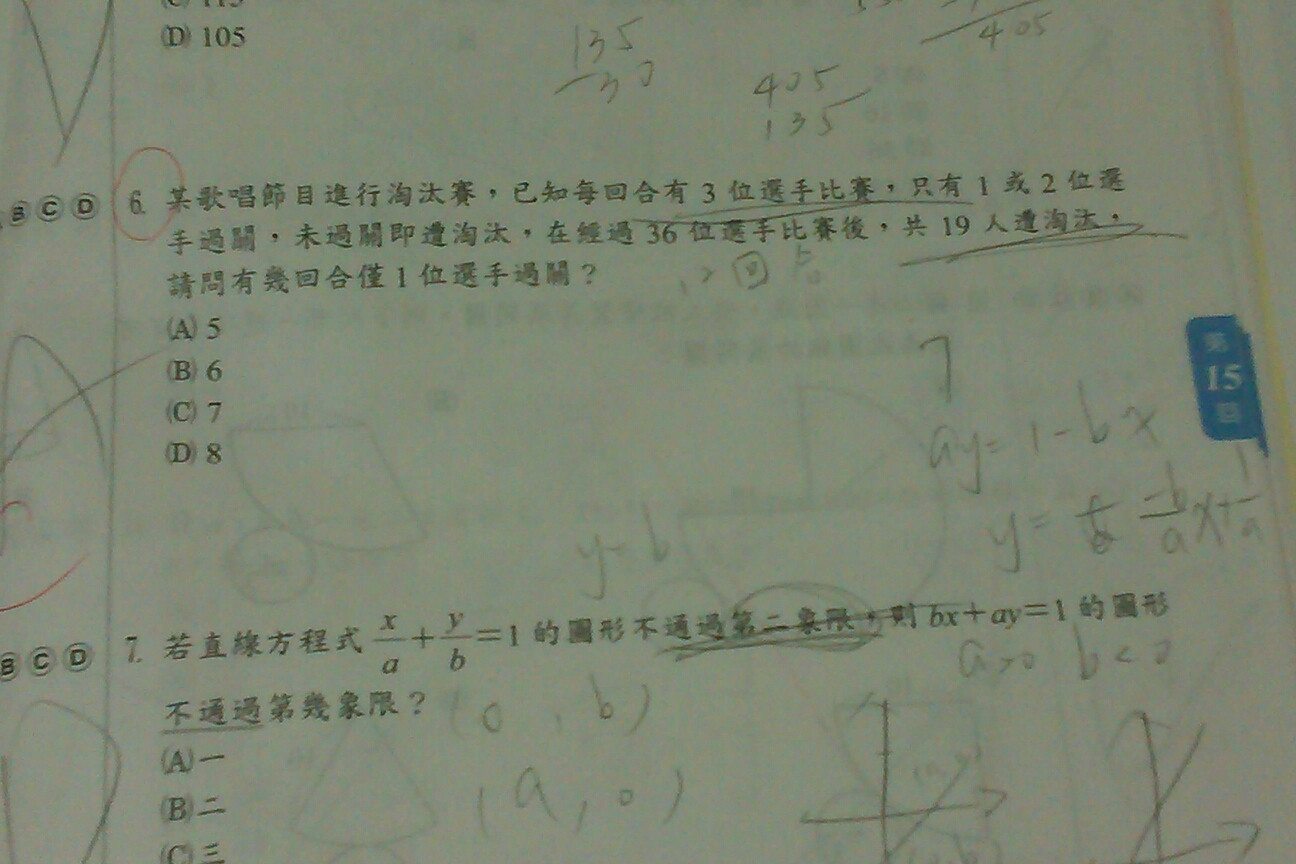 (C) 115
(D) 105
135
30
405
405
135
B C D
6. 某歌唱節目進行淘汰賽，已知每回合有 3 位選手比賽，只有 1 或 2 位選
手過關，未過關即遭淘汰，在經過 36 位選手比賽後，共 19 人遭淘汰，
請問有幾回合僅 1 位選手過關？
(A) 5
(B) 6
(C) 7
(D) 8
第
15
回
7
ay=1-bx
y=b
y= -b/a x+1/a
B C D
7. 若直線方程式 x/a + y/b =1 的圖形不通過第二象限，則 bx+ay=1 的圖形
a>0 b<0
不通過第幾象限？
(0, b)
(A) 一
(a, 0)
(B) 二
(C) 三